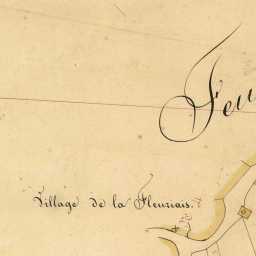 Feu
Village de la Fleuriais.